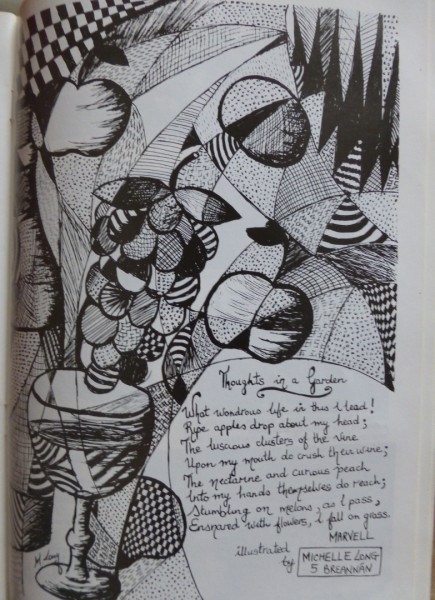 Thoughts in a Garden
What wondrous life in this I lead!
Ripe apples drop about my head;
The luscious clusters of the vine
Upon my mouth do crush their wine;
The nectarine and curious peach
Into my hands themselves do reach;
Stumbling on melons, as I pass,
Ensnared with flowers, I fall on grass.
MARVELL
illustrated
by MICHELLE LONG
5 BREANNÁN
M Long